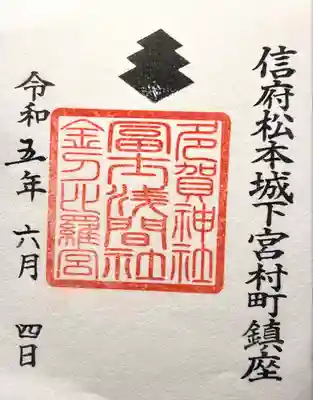 信府松本城下宮村町鎮座
多賀神社
冨士浅間社
金刀比羅宮
令和五年六月四日